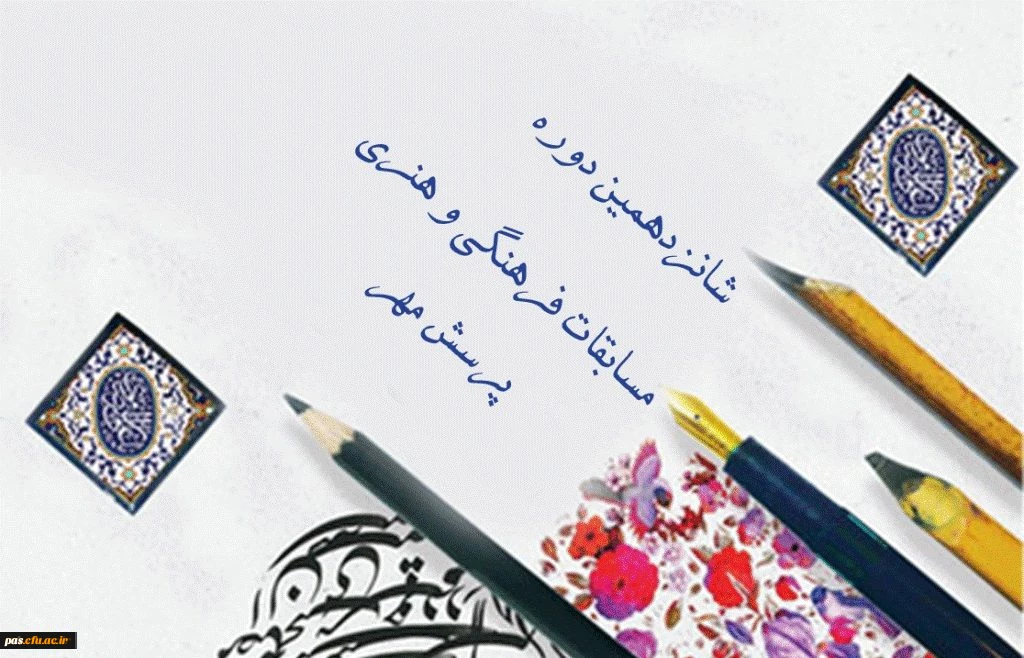 شانزدهمین دوره
مسابقات فرهنگی و هنری
پرسش مهر
pas.cfu.ac.ir